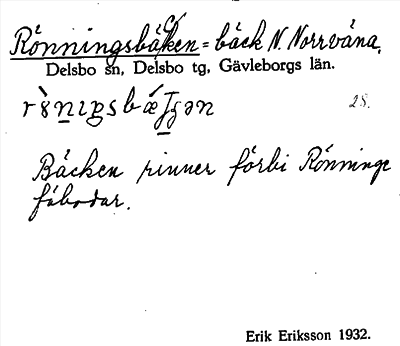 Rönningsbäcken = bäck N. Norrväna,
Delsbo sn, Delsbo tg, Gävleborgs län.
28.
Bäcken rinner förbi Rönninge
fäbodar.
Erik Eriksson 1932.